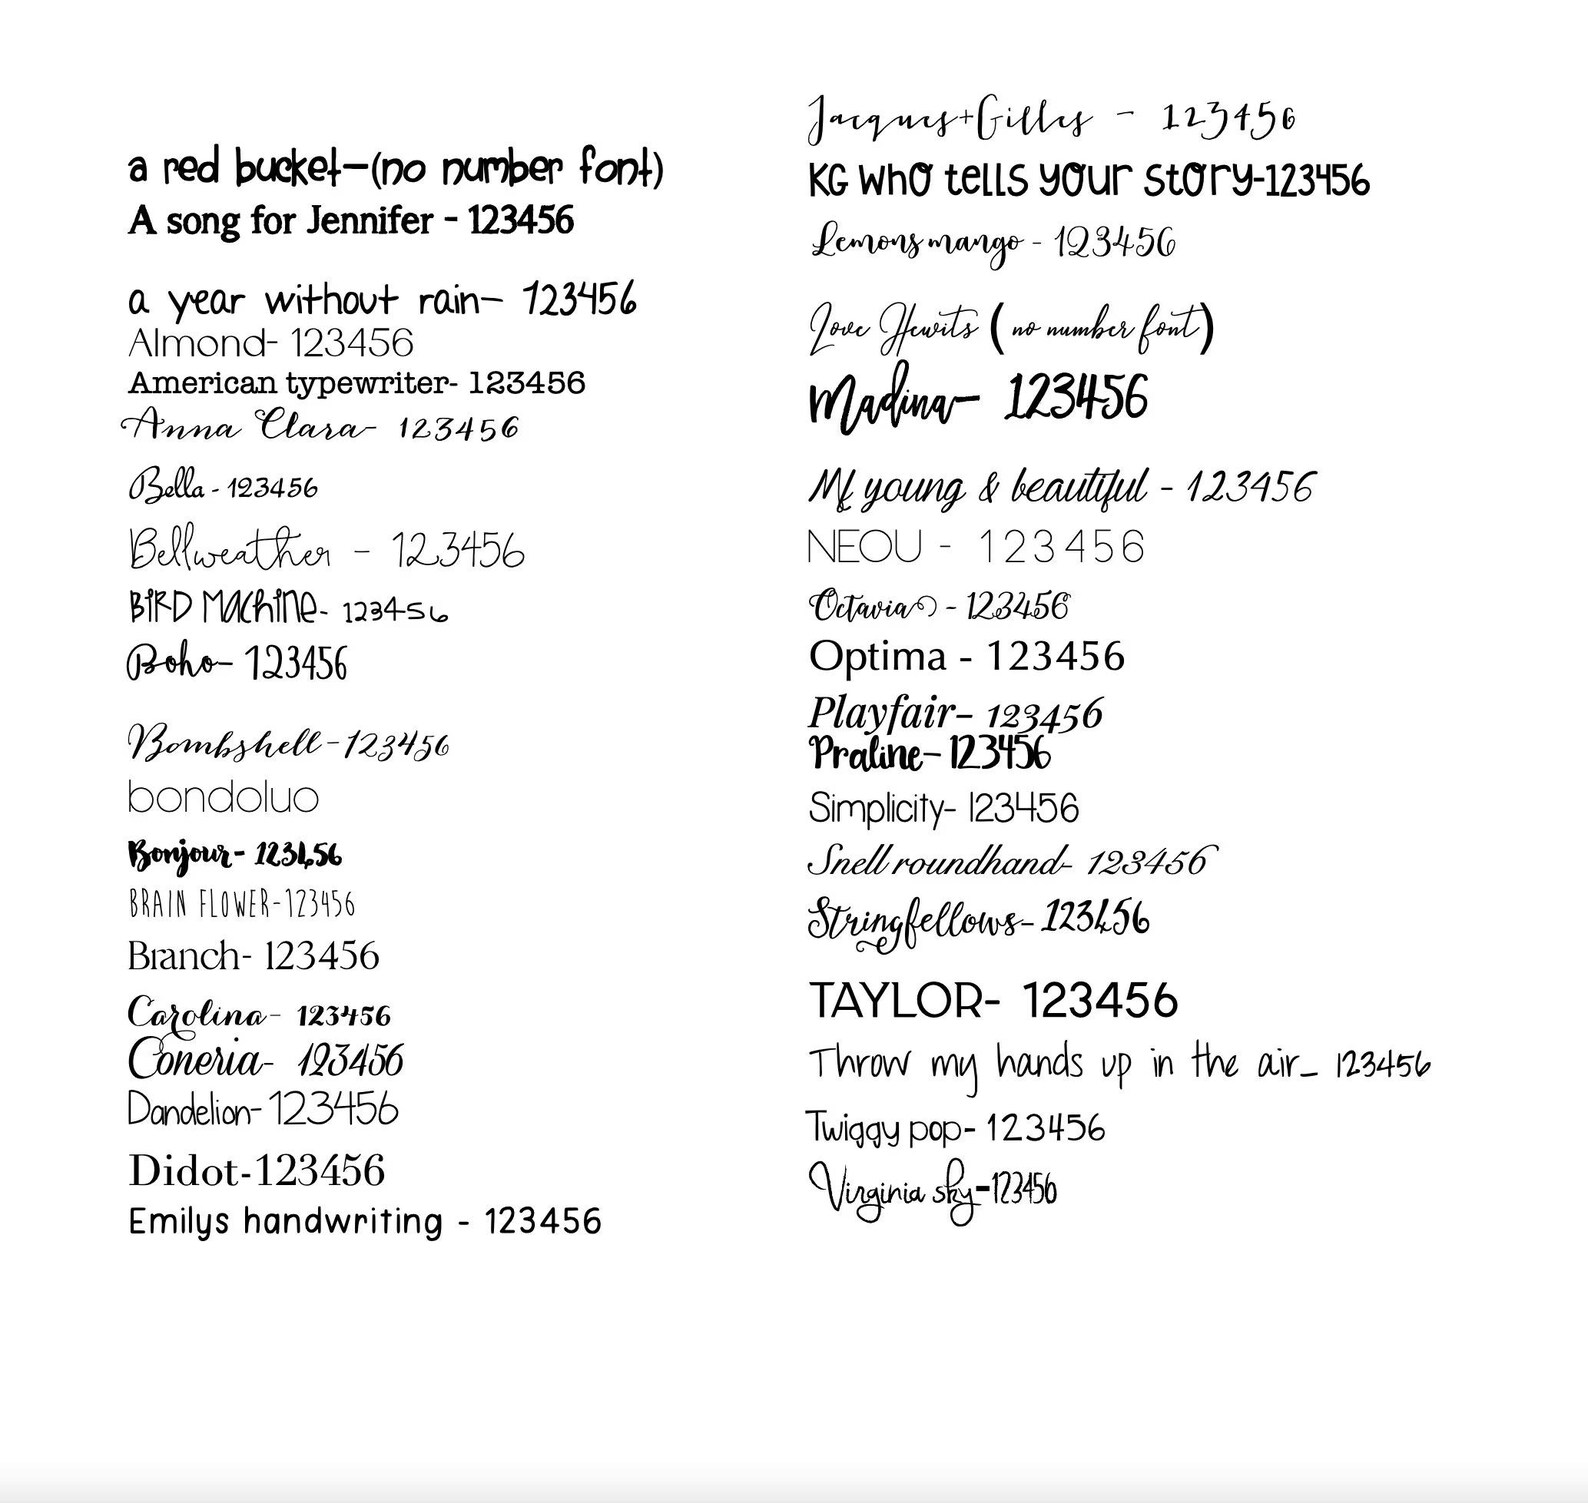 a red bucket-(no number font)
A song for Jennifer - 123456
a year without rain- 123456
Almond- 123456
American typewriter- 123456
Anna Clara- 123456
Bella - 123456
Bellweather - 123456
BIRD MACHINE- 123456
Boho- 123456
Bombshell-123456
bondoluo
Bonjour- 123456
BRAIN FLOWER-123456
Branch- 123456
Carolina- 123456
Coneria- 123456
Dandelion- 123456
Didot-123456
Emilys handwriting - 123456
Jacques+Gilles - 123456
KG who tells your story-123456
Lemons mango - 123456
Love Hewits (no number font)
Madina- 123456
Mf young & beautiful - 123456
NEOU - 123456
Octavia - 123456
Optima - 123456
Playfair- 123456
Praline- 123456
Simplicity- 123456
Snell roundhand- 123456
Stringfellows- 123456
TAYLOR- 123456
Throw my hands up in the air_ 123456
Twiggy pop- 123456
Virginia sky-123456